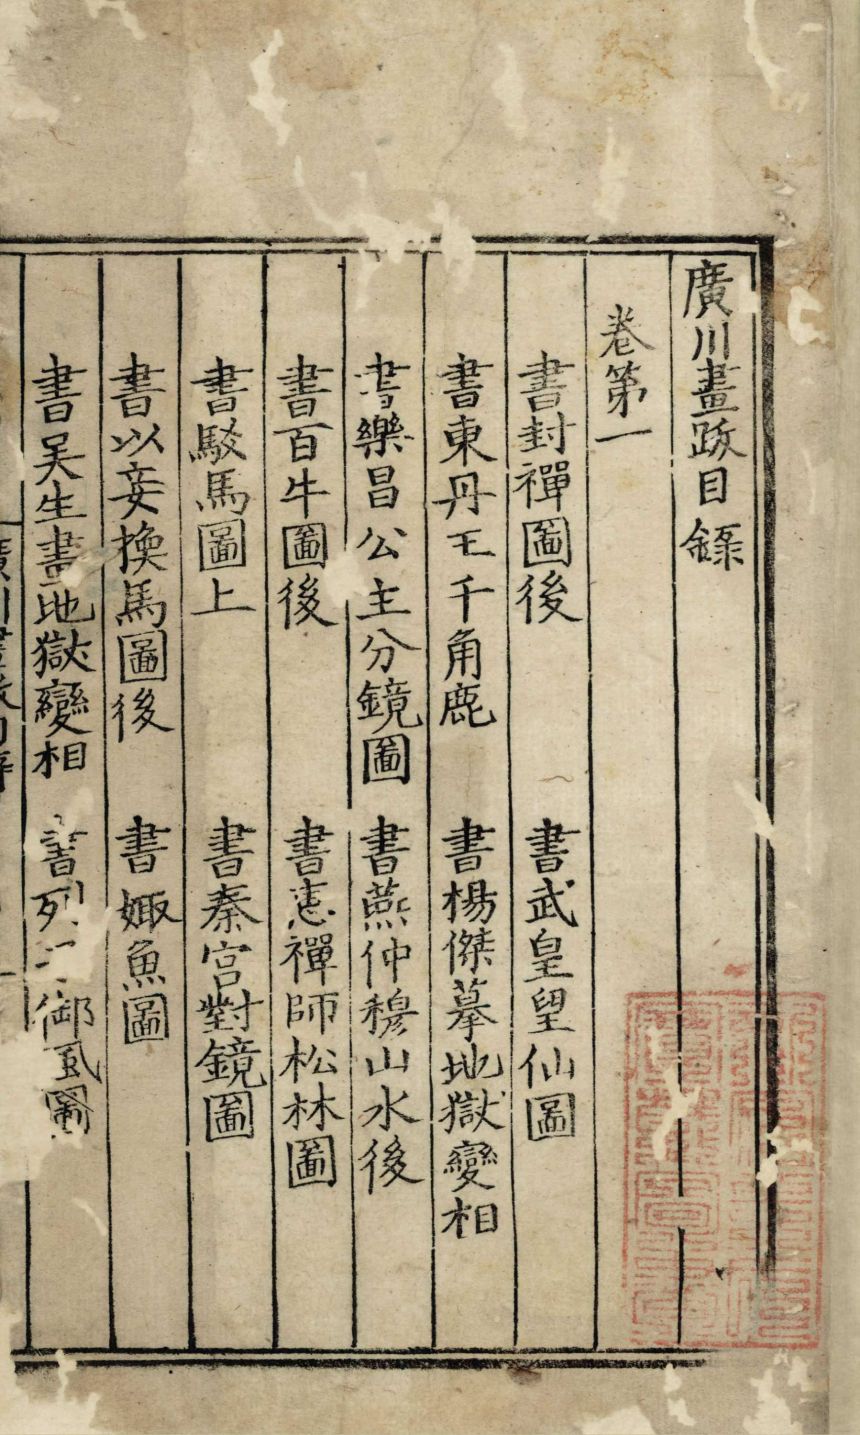 廣川畫跋目錄
卷第一
書封禪圖後　書武皇望仙圖
書東丹王千角鹿　書楊傑摹地獄變相
書樂昌公主分鏡圖　書燕仲穆山水後
書百牛圖後　書惠禪師松林圖
書駁馬圖上　書秦宮對鏡圖
書以妾換馬圖後　書娵魚圖
書吴生畫地獄變相　書列御𩖗圖